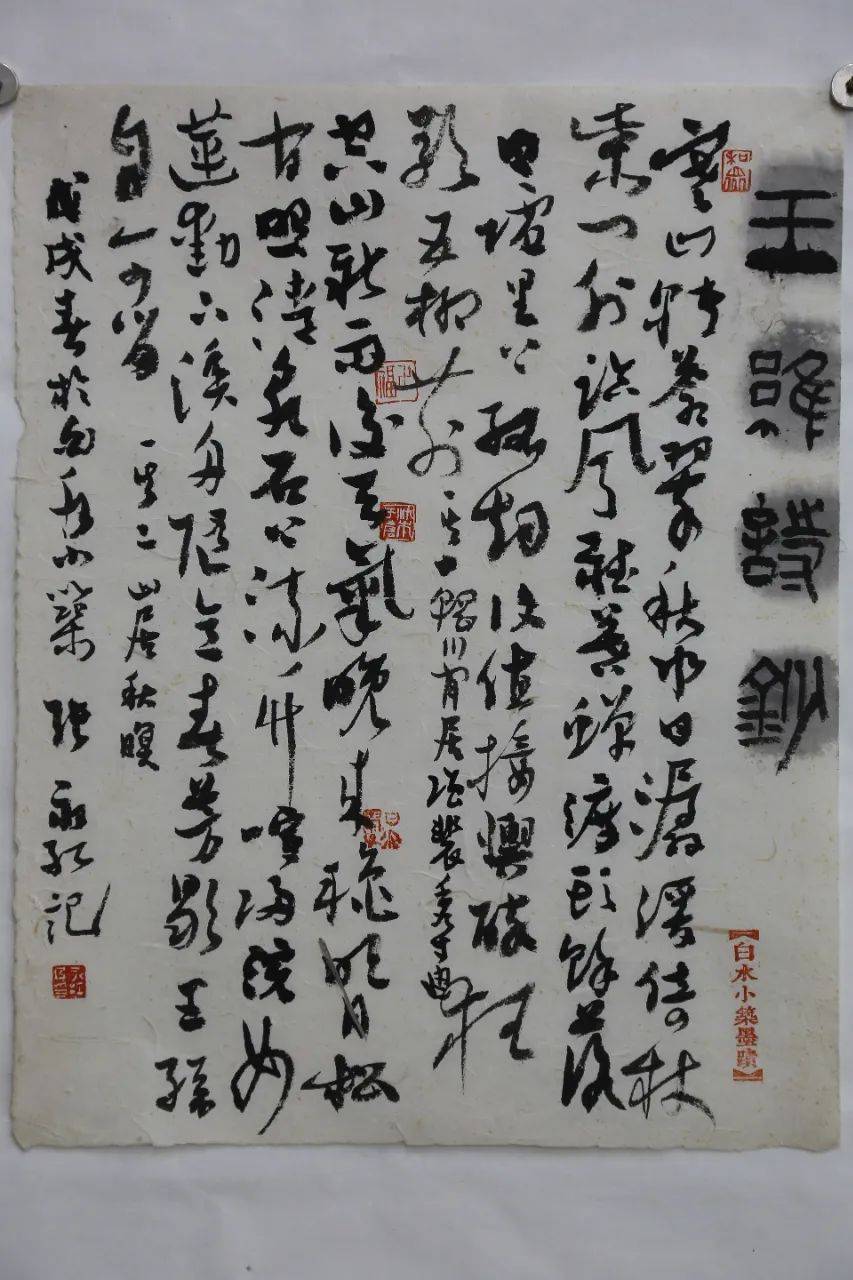 王維詩鈔
寒山轉蒼翠秋水日潺湲倚杖
柴门外臨風聽暮蟬渡頭餘落
日墟里上孤烟復值接輿醉狂
歌五柳前 其一 輞川閒居贈裴秀才迪
空山新雨後天氣晚來秋明月松
間照清泉石上流竹喧歸浣女
蓮動下漁舟隨意春芳歇王孫
自可留 其二 山居秋暝
戊戌春於白水小築 张永红记
【白水小築墨蹟】